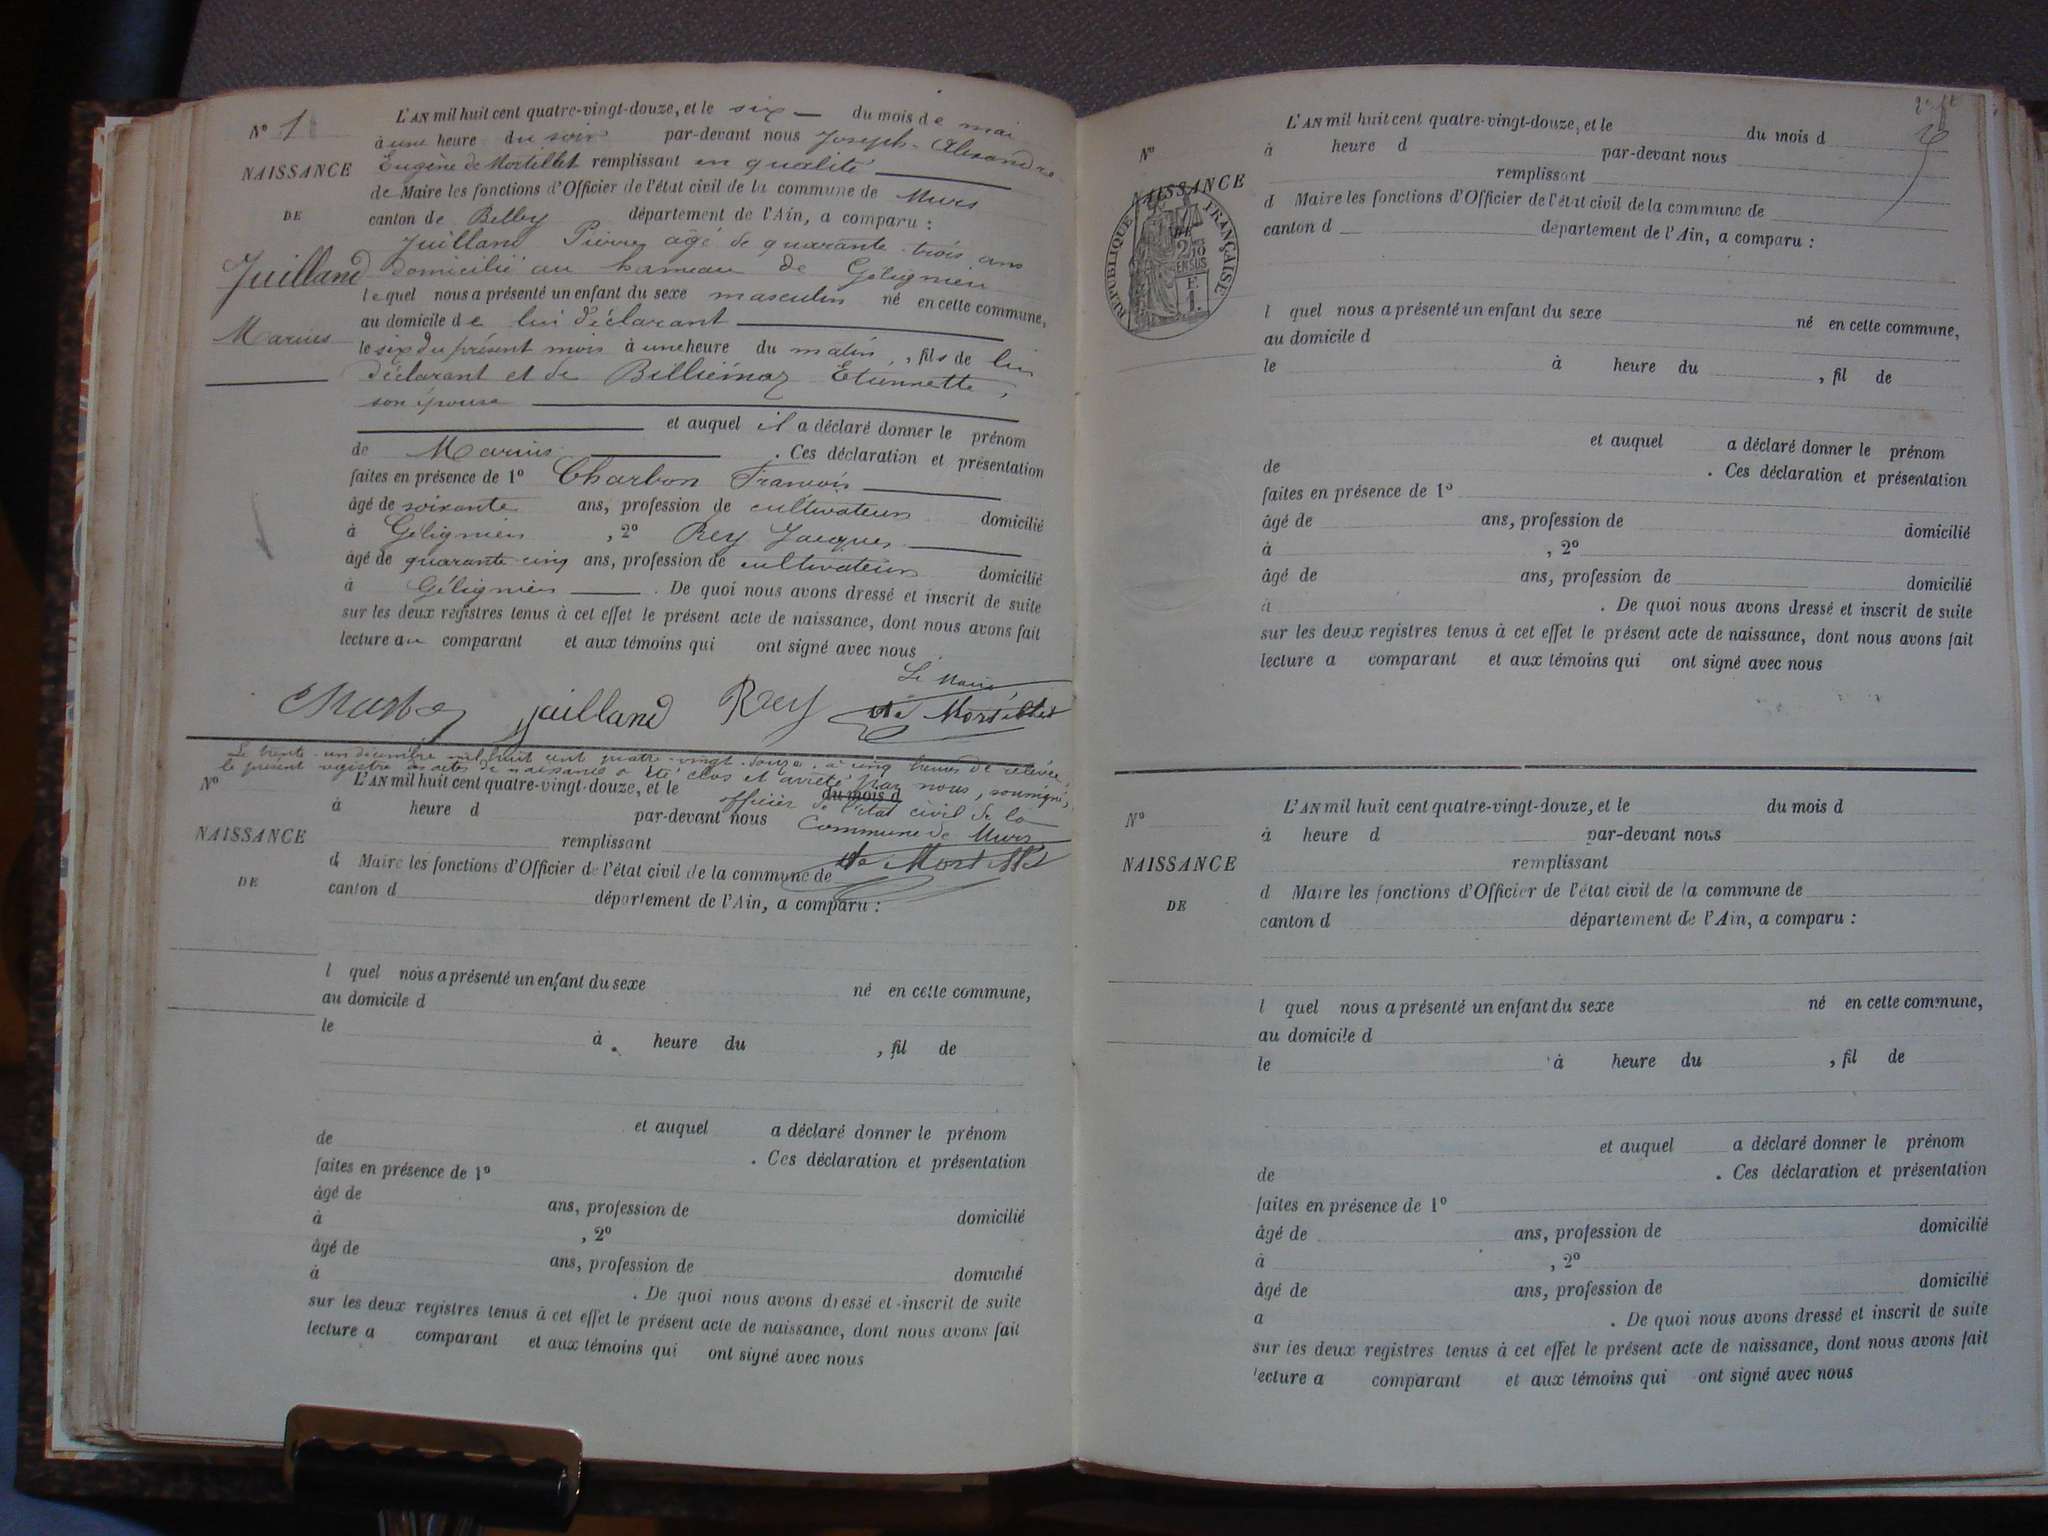 L'AN mil huit cent quatre-vingt-douze, et le six du mois de mai
N° 1
à une heure du soir par-devant nous Joseph-Alexandre
NAISSANCE
Eugène de Mortillet remplissant en qualité
de Maire les fonctions d'Officier de l'état civil de la commune de Murs
DE
canton de Belley département de l'Ain, a comparu :
Juilland Pierre âgé de quarante-trois ans
Juilland
domicilié au hameau de Gélignieu
lequel nous a présenté un enfant du sexe masculin né en cette commune,
au domicile de lui déclarant
Marius
le six du présent mois à une heure du matin, fils de lui
déclarant et de Billiémaz Etiennette,
son épouse
et auquel il a déclaré donner le prénom
de Marius . Ces déclaration et présentation
faites en présence de 1° Charbon François
âgé de soixante ans, profession de cultivateur domicilié
à Gélignieu , 2° Rey Jacques
âgé de quarante-cinq ans, profession de cultivateur domicilié
à Gélignieu . De quoi nous avons dressé et inscrit de suite
sur les deux registres tenus à cet effet le présent acte de naissance, dont nous avons fait
lecture au comparant et aux témoins qui ont signé avec nous
Le Maire
Juilland Rey de Mortillet
Le trente-un décembre mil huit cent quatre-vingt-douze, à cinq heures de relevée,
le présent registre des actes de naissances a été clos et arrêté par nous, soussigné,
officier de l'état civil de la
commune de Murs
de Mortillet
N°
L'AN mil huit cent quatre-vingt-douze, et le du mois d
à heure d par-devant nous
NAISSANCE
remplissant
d Maire les fonctions d'Officier de l'état civil de la commune de
DE
canton d département de l'Ain, a comparu :
l quel nous a présenté un enfant du sexe né en cette commune,
au domicile d
le à heure du , fil de
et auquel a déclaré donner le prénom
de . Ces déclaration et présentation
faites en présence de 1°
âgé de ans, profession de domicilié
à , 2°
âgé de ans, profession de domicilié
à . De quoi nous avons dressé et inscrit de suite
sur les deux registres tenus à cet effet le présent acte de naissance, dont nous avons fait
lecture a comparant et aux témoins qui ont signé avec nous
L'AN mil huit cent quatre-vingt-douze, et le du mois d
N°
à heure d par-devant nous
NAISSANCE
remplissant
d Maire les fonctions d'Officier de l'état civil de la commune de
RÉPUBLIQUE FRANÇAISE
canton d département de l'Ain, a comparu :
l quel nous a présenté un enfant du sexe né en cette commune,
au domicile d
le à heure du , fil de
et auquel a déclaré donner le prénom
de . Ces déclaration et présentation
faites en présence de 1°
âgé de ans, profession de domicilié
à , 2°
âgé de ans, profession de domicilié
à . De quoi nous avons dressé et inscrit de suite
sur les deux registres tenus à cet effet le présent acte de naissance, dont nous avons fait
lecture a comparant et aux témoins qui ont signé avec nous
L'AN mil huit cent quatre-vingt-douze, et le du mois d
N°
à heure d par-devant nous
NAISSANCE
remplissant
d Maire les fonctions d'Officier de l'état civil de la commune de
DE
canton d département de l'Ain, a comparu :
l quel nous a présenté un enfant du sexe né en cette commune,
au domicile d
le à heure du , fil de
et auquel a déclaré donner le prénom
de . Ces déclaration et présentation
faites en présence de 1°
âgé de ans, profession de domicilié
à , 2°
âgé de ans, profession de domicilié
a . De quoi nous avons dressé et inscrit de suite
sur les deux registres tenus à cet effet le présent acte de naissance, dont nous avons fait
lecture a comparant et aux témoins qui ont signé avec nous